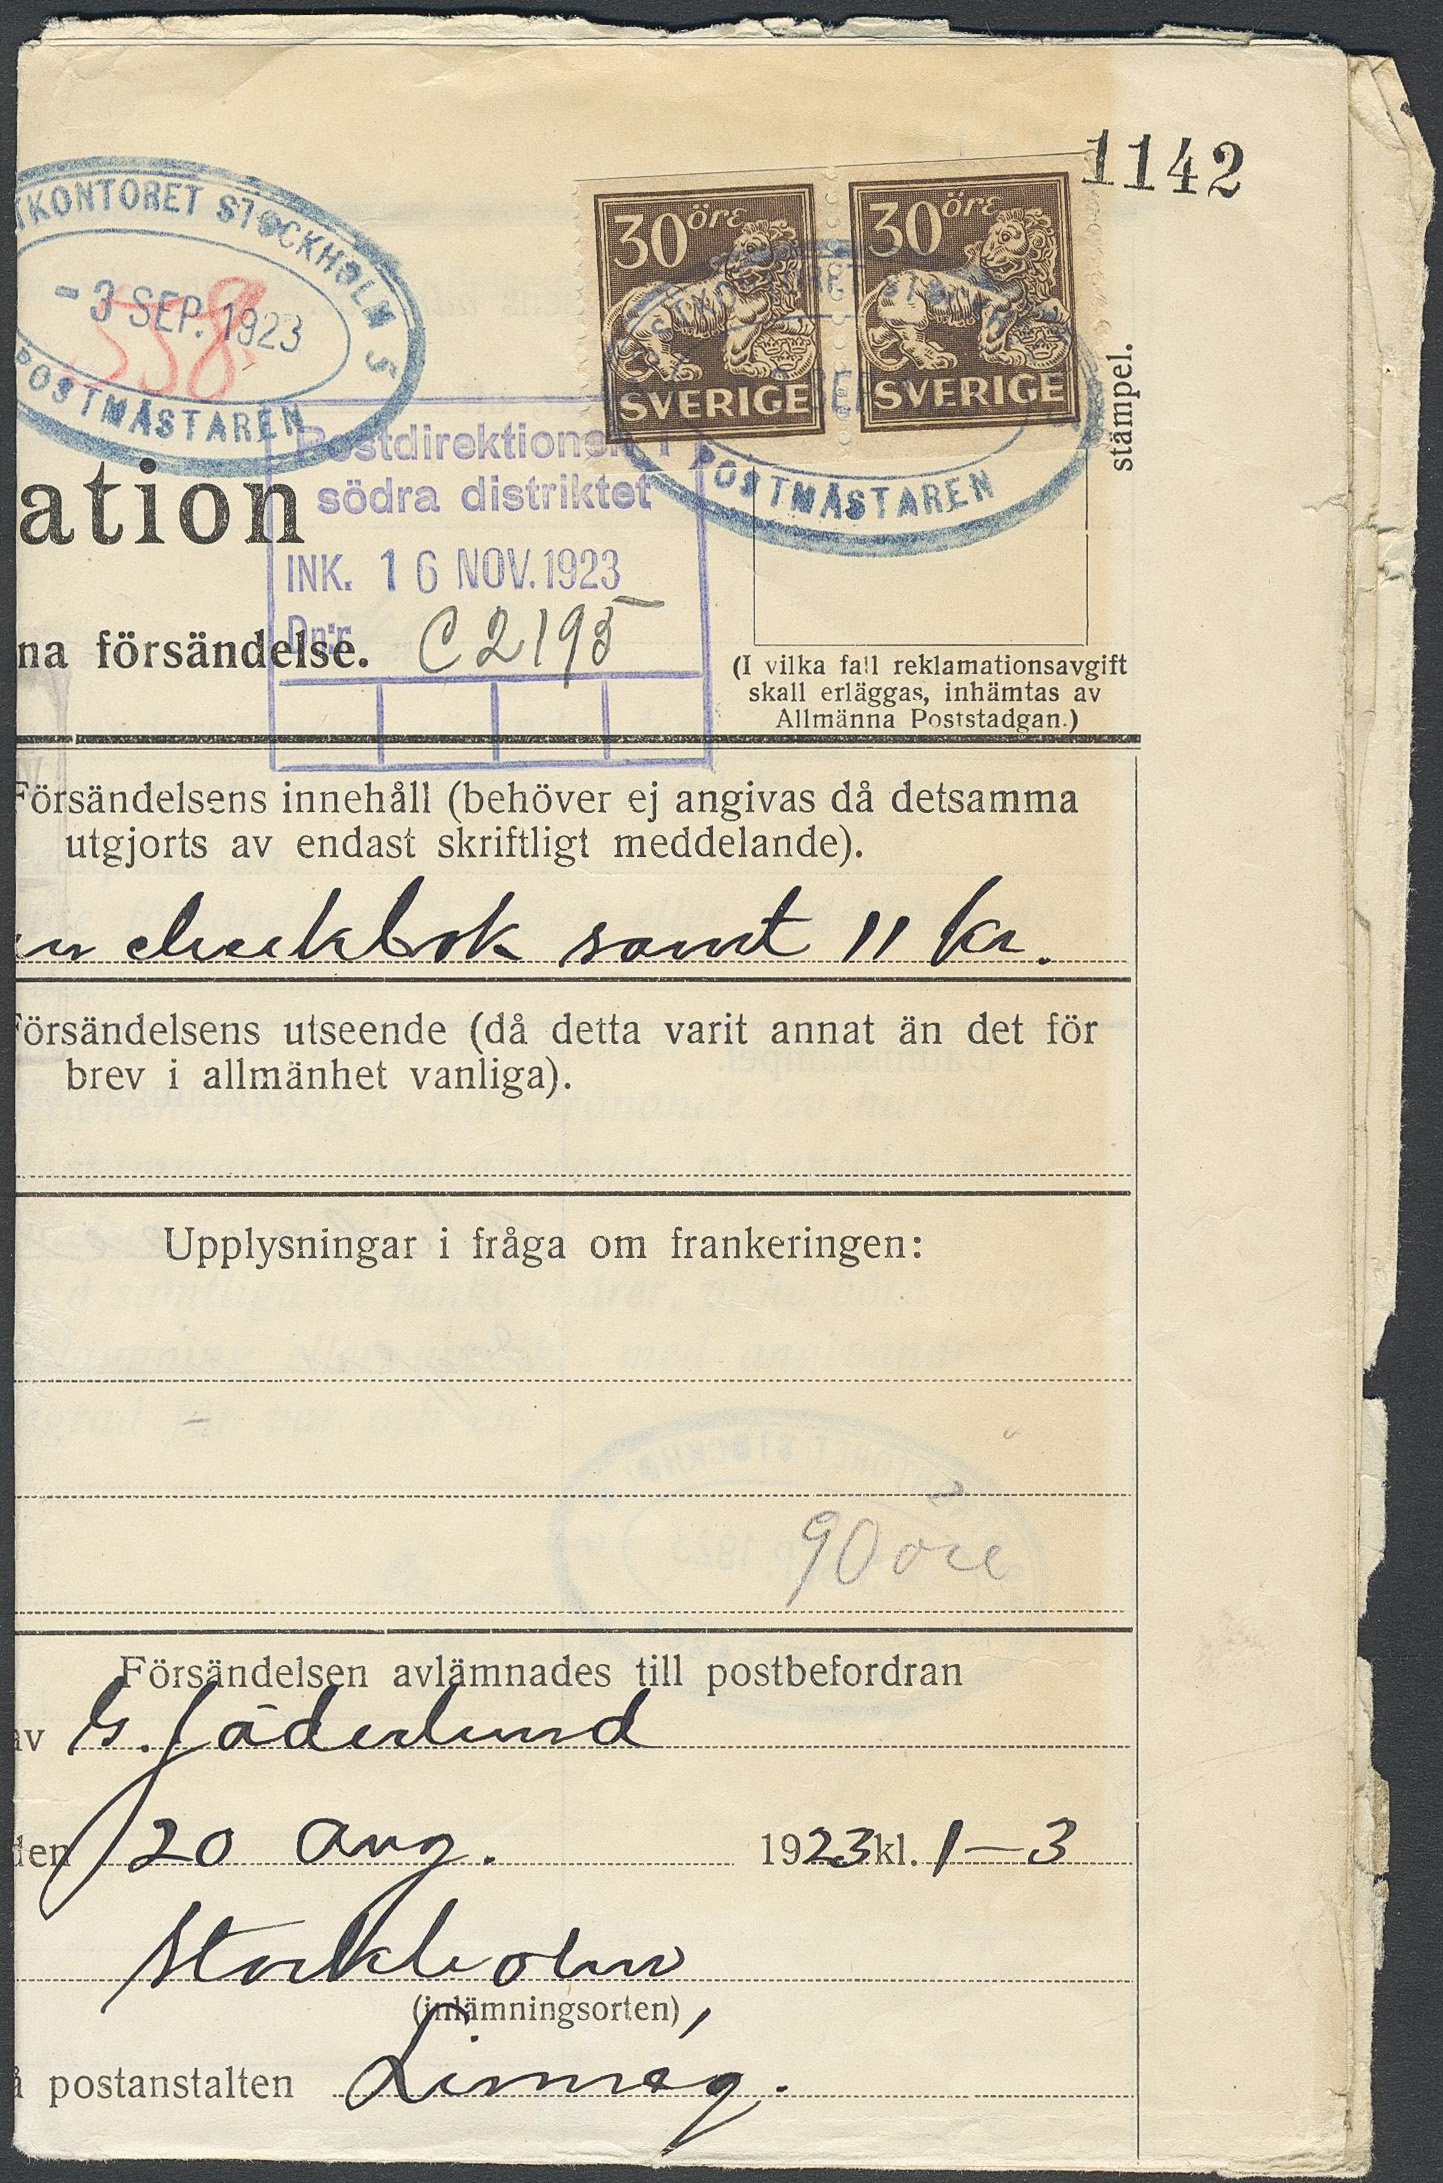 1142
TKONTORET STOCKHOLM 5
- 3 SEP. 1923
558
POSTMÄSTAREN
30 öre
SVERIGE
30 öre
SVERIGE
POSTMÄSTAREN
stämpel.
Postdirektionen i
södra distriktet
INK. 16 NOV. 1923
Dn:r C 2195
ation
na försändelse.
(I vilka fall reklamationsavgift
skall erläggas, inhämtas av
Allmänna Poststadgan.)
Försändelsens innehåll (behöver ej angivas då detsamma
utgjorts av endast skriftligt meddelande).
en checkbok samt 11 kr.
Försändelsens utseende (då detta varit annat än det för
brev i allmänhet vanliga).
Upplysningar i fråga om frankeringen:
90 öre
Försändelsen avlämnades till postbefordran
av G. Jäderlund
den 20 aug. 1923 kl. 1–3
Stockholm
(inlämningsorten),
å postanstalten Linneg.